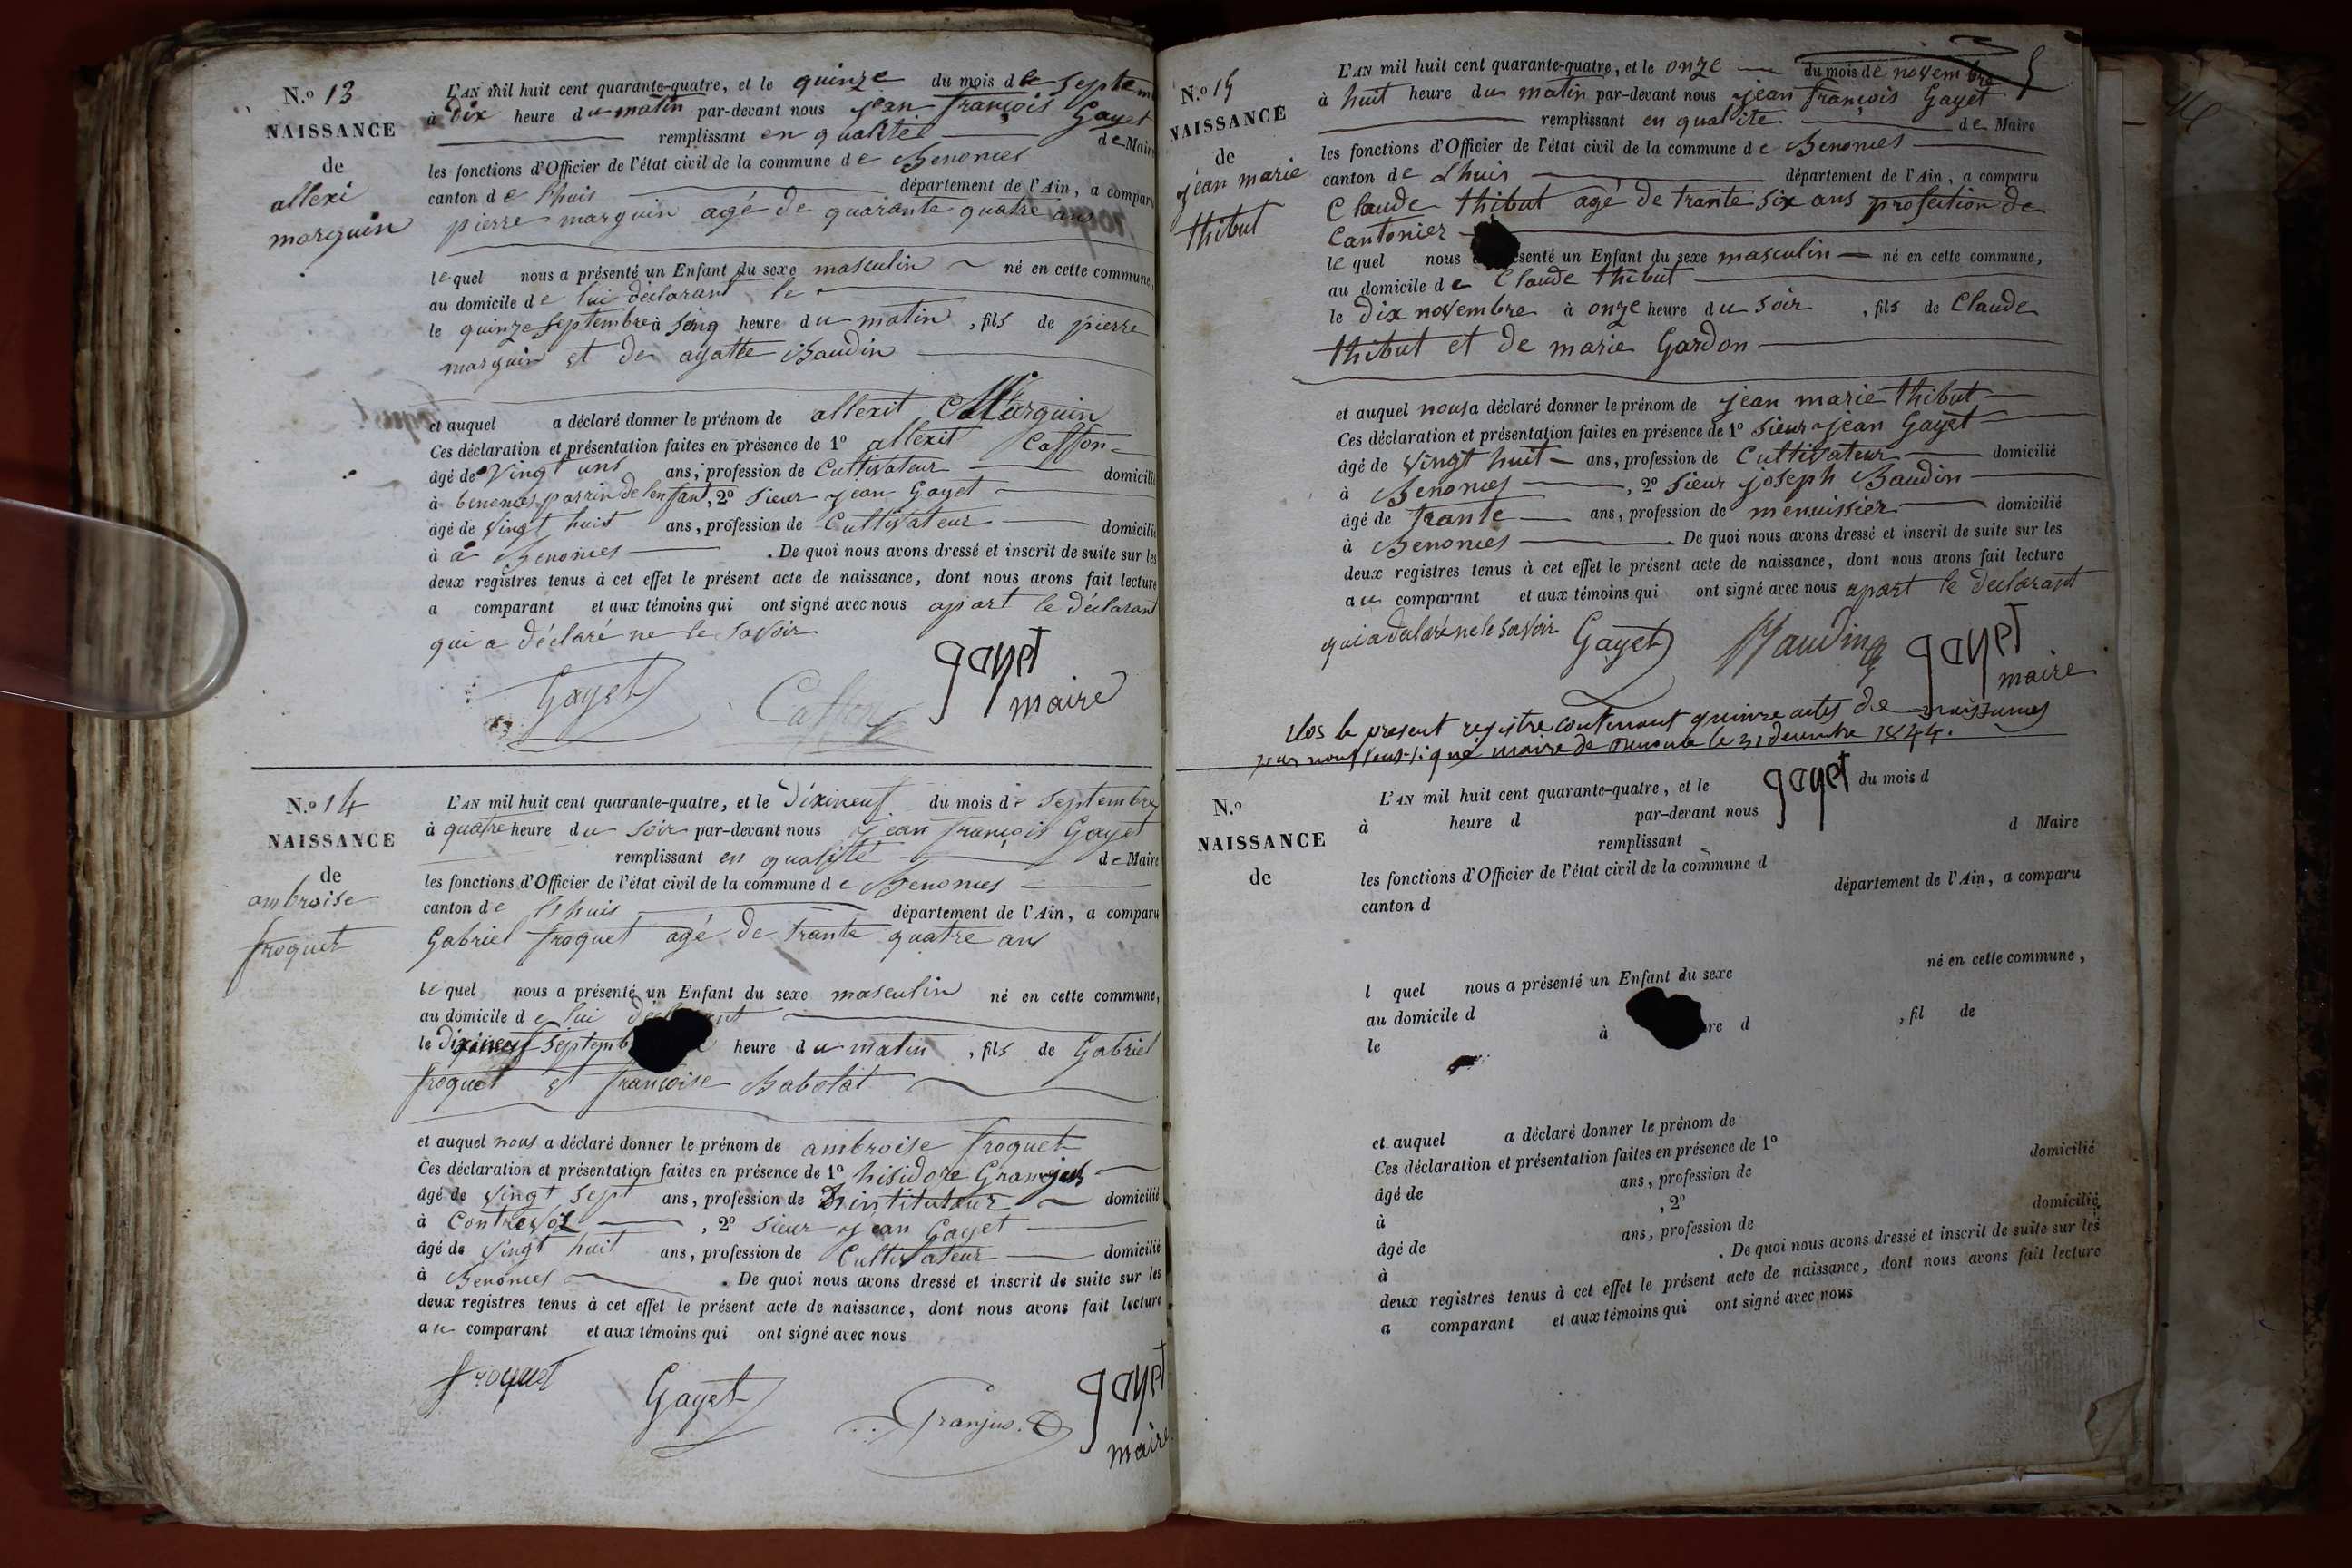 N.o 13
NAISSANCE
de
allexi
marguin
L'AN mil huit cent quarante-quatre, et le quinze du mois de septem
à dix heure du matin par-devant nous jean françois Gayet
remplissant en qualité de Maire
les fonctions d'Officier de l'état civil de la commune de Benonces
canton de lhuis département de l'Ain, a comparu
pierre marguin agé de quarante quatre ans
lequel nous a présenté un Enfant du sexe masculin né en cette commune,
au domicile de lui déclarant le
le quinze septembre à sinq heure du matin, fils de pierre
marguin et de agatte Baudin
et auquel a déclaré donner le prénom de allexit Marguin
Ces déclaration et présentation faites en présence de 1o allexit Caffon
âgé de vingt uns ans, profession de Cultivateur domicilié
à benonces parrin de lenfant, 2o sieur jean Gayet
âgé de vingt huit ans, profession de Cultivateur domicilié
à a Benonces. De quoi nous avons dressé et inscrit de suite sur les
deux registres tenus à cet effet le présent acte de naissance, dont nous avons fait lecture
a comparant et aux témoins qui ont signé avec nous apart le déclarant
qui a déclaré ne le savoir
Gayet Caffon gayet
maire
N.o 14
NAISSANCE
de
ambroise
froquet
L'AN mil huit cent quarante-quatre, et le dixineuf du mois de septembre
à quatre heure du soir par-devant nous jean françois Gayet
remplissant en qualité de Maire
les fonctions d'Officier de l'état civil de la commune de Benonces
canton de lhuis département de l'Ain, a comparu
Gabriel froquet agé de trante quatre ans
lequel nous a présenté un Enfant du sexe masculin né en cette commune,
au domicile de lui
le dixineuf septemb heure du matin, fils de Gabriel
froquet et françoise Babolat
et auquel nous a déclaré donner le prénom de ambroise froquet
Ces déclaration et présentation faites en présence de 1o hisidore Granjus
âgé de vingt sept ans, profession de instituteur domicilié
à Contrevoz, 2o sieur jean Gayet
âgé de vingt huit ans, profession de Cultivateur domicilié
à Benonces. De quoi nous avons dressé et inscrit de suite sur les
deux registres tenus à cet effet le présent acte de naissance, dont nous avons fait lecture
au comparant et aux témoins qui ont signé avec nous
froquet Gayet Granjus gayet
maire
N.o 15
NAISSANCE
de
jean marie
thibut
L'AN mil huit cent quarante-quatre, et le onze du mois de novembre
à huit heure du matin par-devant nous jean françois Gayet
remplissant en qualite de Maire
les fonctions d'Officier de l'état civil de la commune de Benonces
canton de Lhuis département de l'Ain, a comparu
Claude thibut agé de trante six ans profection de
Cantonier
lequel nous senté un Enfant du sexe masculin né en cette commune,
au domicile de Claude thibut
le dix novembre à onze heure du soir, fils de Claude
thibut et de marie Gardon
et auquel nous a déclaré donner le prénom de jean marie thibut
Ces déclaration et présentation faites en présence de 1o sieur jean Gayet
âgé de vingt huit ans, profession de Cultivateur domicilié
à Benonces, 2o sieur joseph Baudin
âgé de trante ans, profession de menuissier domicilié
à Benonces. De quoi nous avons dressé et inscrit de suite sur les
deux registres tenus à cet effet le présent acte de naissance, dont nous avons fait lecture
au comparant et aux témoins qui ont signé avec nous apart le declarant
qui a declaré ne le savoir Gayet Baudin gayet
maire
Clos le present registre contenant quinze actes de naissances
par nous soussigné maire de Benonce le 31 decembre 1844.
gayet
N.o
NAISSANCE
de
L'AN mil huit cent quarante-quatre, et le du mois d
à heure d par-devant nous
remplissant d Maire
les fonctions d'Officier de l'état civil de la commune d
canton d département de l'Ain, a comparu
l quel nous a présenté un Enfant du sexe né en cette commune,
au domicile d
le à re d, fil de
et auquel a déclaré donner le prénom de
Ces déclaration et présentation faites en présence de 1o
âgé de ans, profession de domicilié
à, 2o
âgé de ans, profession de domicilié
à. De quoi nous avons dressé et inscrit de suite sur les
deux registres tenus à cet effet le présent acte de naissance, dont nous avons fait lecture
a comparant et aux témoins qui ont signé avec nous